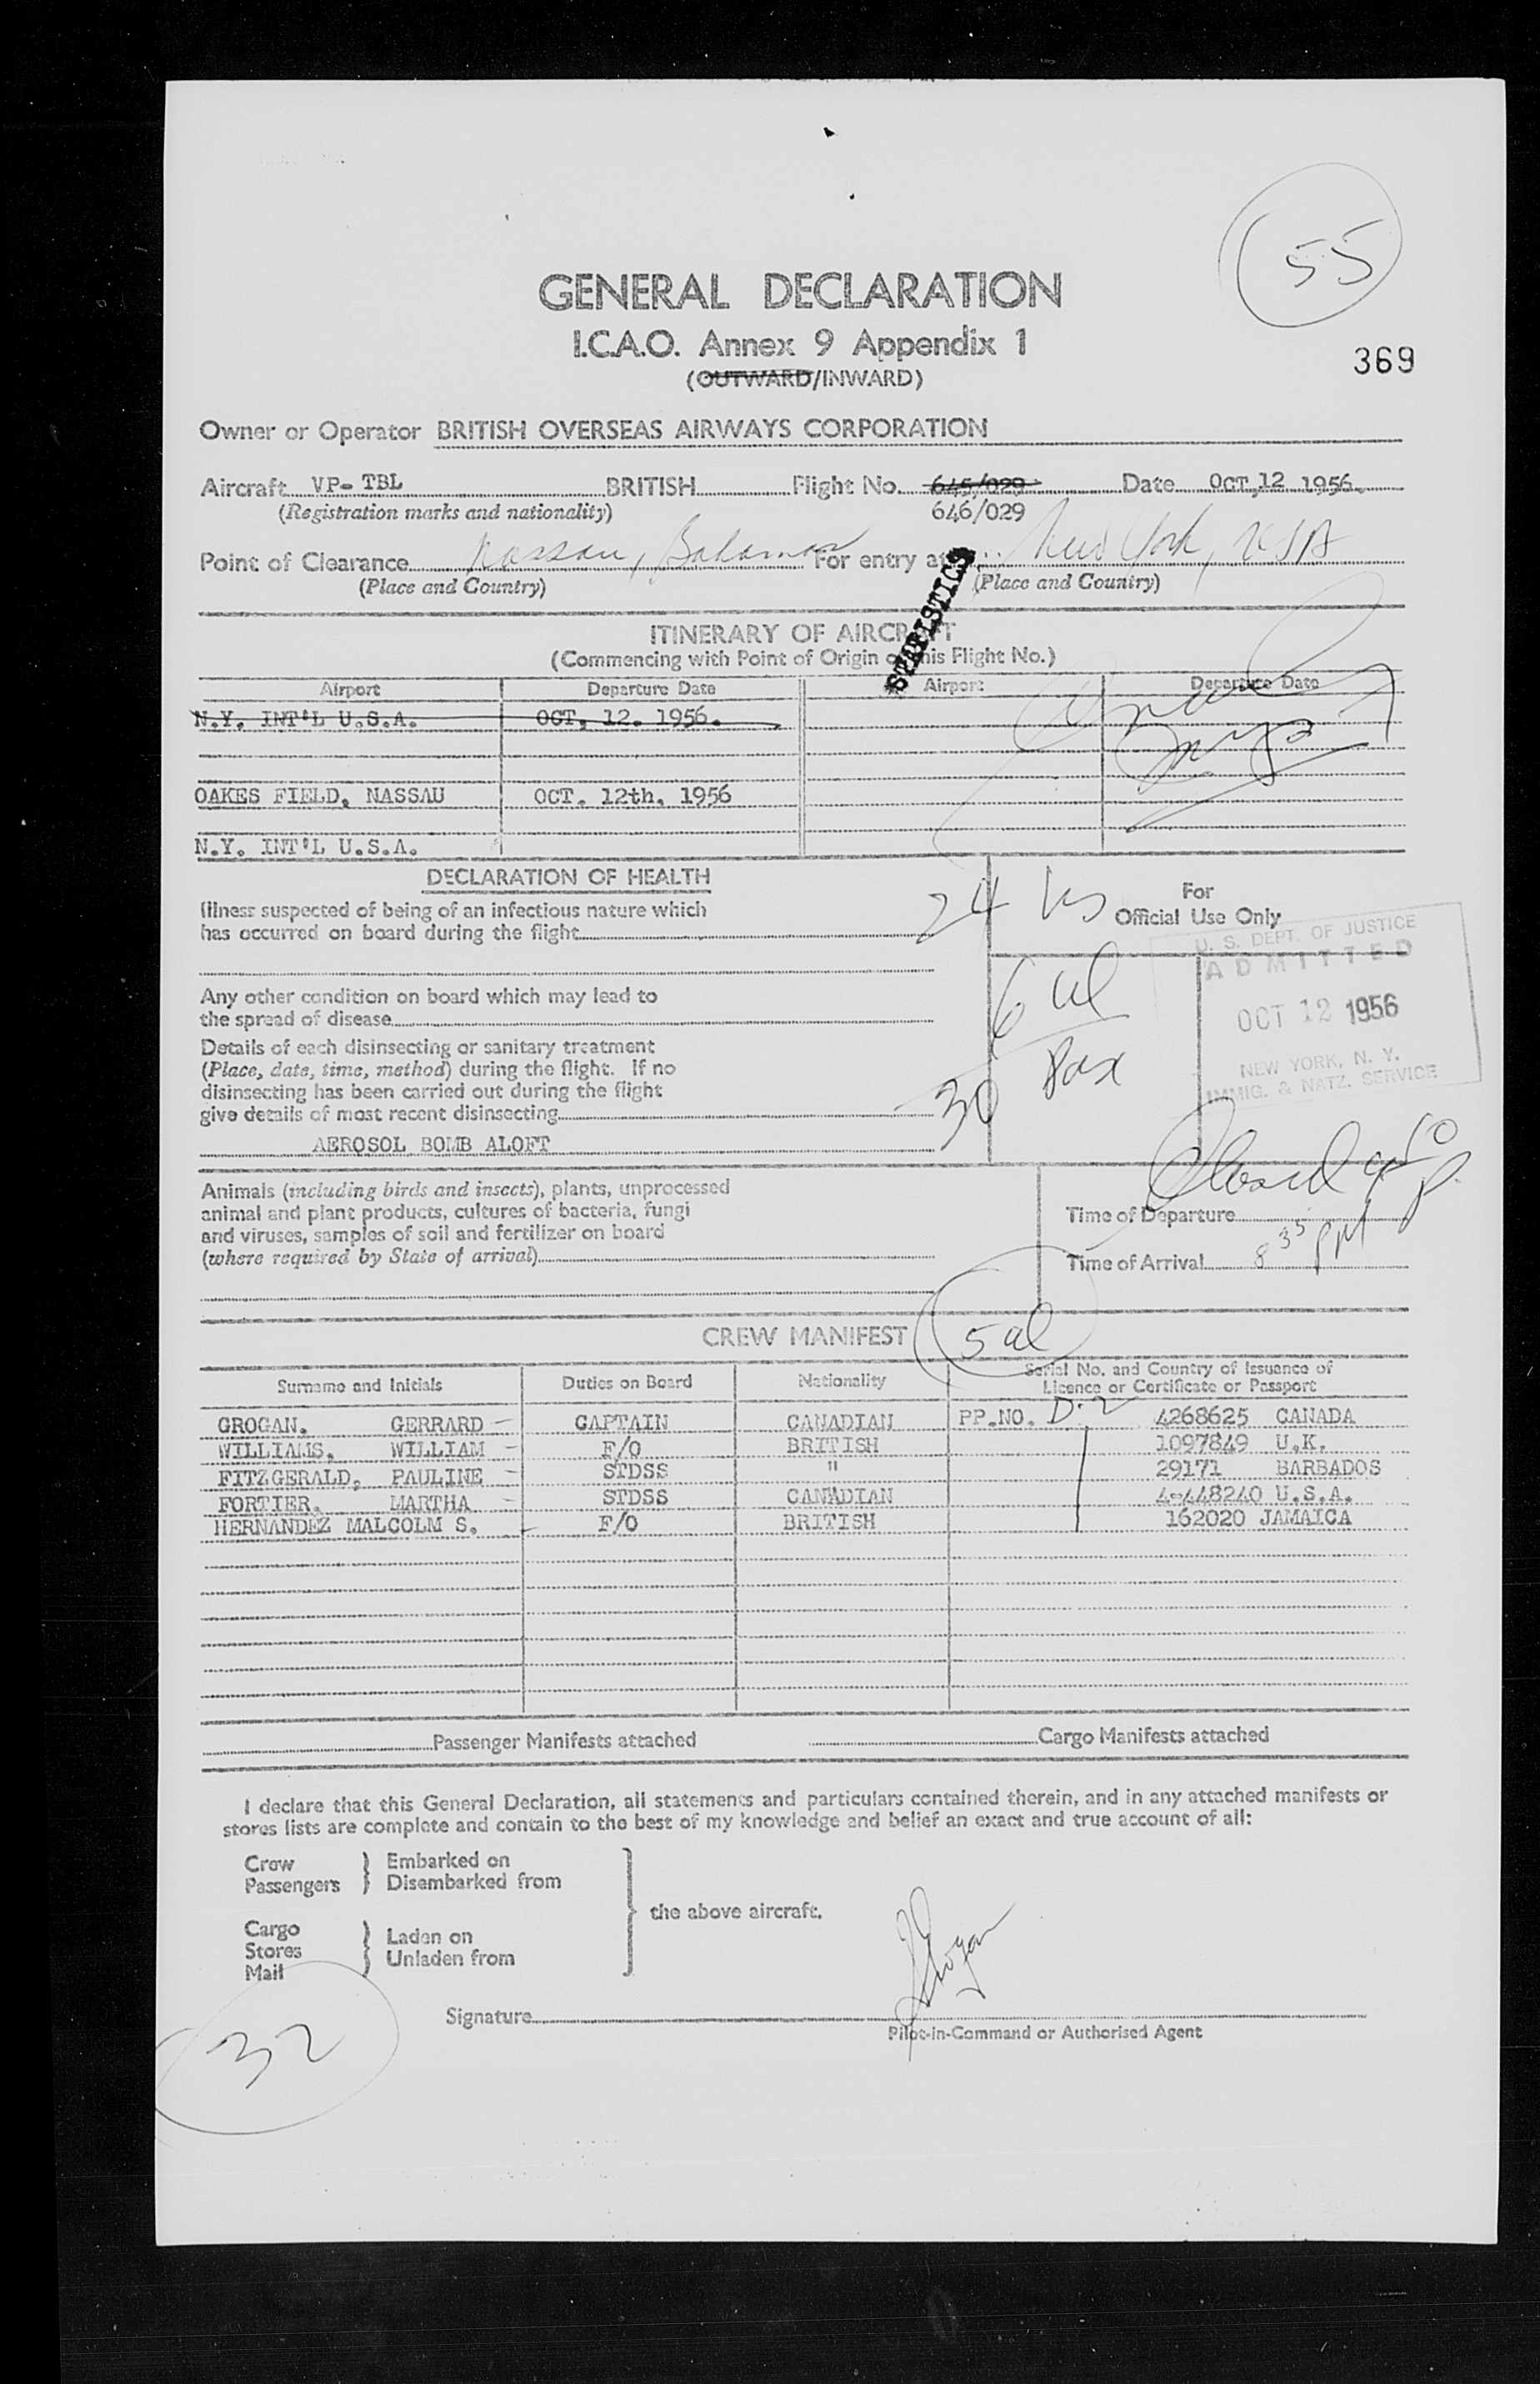 55
GENERAL DECLARATION
I.C.A.O. Annex 9 Appendix 1
(OUTWARD/INWARD)
369
Owner or Operator BRITISH OVERSEAS AIRWAYS CORPORATION
Aircraft VP-TBL BRITISH Flight No. 645/029 Date OCT,12 1956.
(Registration marks and nationality) 646/029
Point of Clearance Nassau, Bahamas For entry at New York, USA
(Place and Country) (Place and Country)
STATISTICS
ITINERARY OF AIRCRAFT
(Commencing with Point of Origin of this Flight No.)
Airport Departure Date Airport Departure Date
N.Y. INT'L U.S.A. OCT. 12. 1956.
OAKES FIELD, NASSAU OCT. 12th, 1956
N.Y. INT'L U.S.A.
DECLARATION OF HEALTH
Illness suspected of being of an infectious nature which
has occurred on board during the flight
Any other condition on board which may lead to
the spread of disease
Details of each disinsecting or sanitary treatment
(Place, date, time, method) during the flight. If no
disinsecting has been carried out during the flight
give details of most recent disinsecting
AEROSOL BOMB ALOFT
24 us
6 al
30 Pax
For
Official Use Only
U. S. DEPT. OF JUSTICE
ADMITTED
OCT 12 1956
NEW YORK, N. Y.
IMMIG. & NATZ. SERVICE
Animals (including birds and insects), plants, unprocessed
animal and plant products, cultures of bacteria, fungi
and viruses, samples of soil and fertilizer on board
(where required by State of arrival)
Closed
Time of Departure
Time of Arrival 8 35 PM
CREW MANIFEST 5 al
Surname and Initials Duties on Board Nationality Serial No. and Country of Issuance of
Licence or Certificate or Passport
GROGAN. GERRARD CAPTAIN CANADIAN PP.NO. D-2 4268625 CANADA
WILLIAMS, WILLIAM F/O BRITISH 1097849 U.K.
FITZGERALD, PAULINE STDSS " 29171 BARBADOS
FORTIER. MARTHA STDSS CANADIAN 4-448240 U.S.A.
HERNANDEZ MALCOLM S. F/O BRITISH 162020 JAMAICA
Passenger Manifests attached Cargo Manifests attached
I declare that this General Declaration, all statements and particulars contained therein, and in any attached manifests or
stores lists are complete and contain to the best of my knowledge and belief an exact and true account of all:
Crew Embarked on
Passengers Disembarked from
the above aircraft.
Cargo Laden on
Stores Unladen from
Mail
Grogan
Signature
Pilot-in-Command or Authorised Agent
32